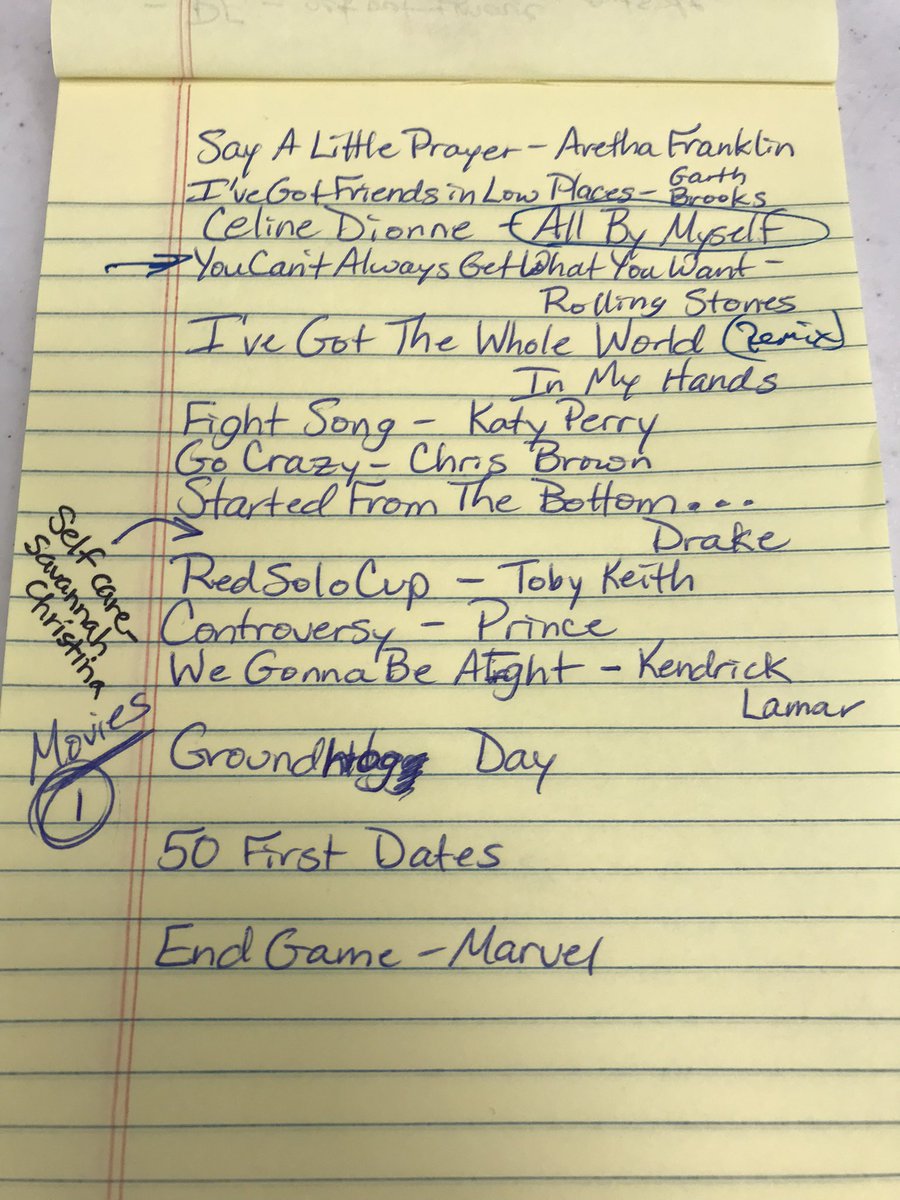 Say A Little Prayer - Aretha Franklin
I've Got Friends in Low Places - Garth Brooks
Celine Dionne - All By Myself
You Can't Always Get What You Want -
Rolling Stones
I've Got The Whole World (Remix)
In My Hands
Fight Song - Katy Perry
Go Crazy - Chris Brown
Started From The Bottom...
Drake
Self care -
Savannah
Christina
Red Solo Cup - Toby Keith
Controversy - Prince
We Gonna Be Alright - Kendrick
Lamar
Movies
1
Groundhog Day
50 First Dates
End Game - Marvel